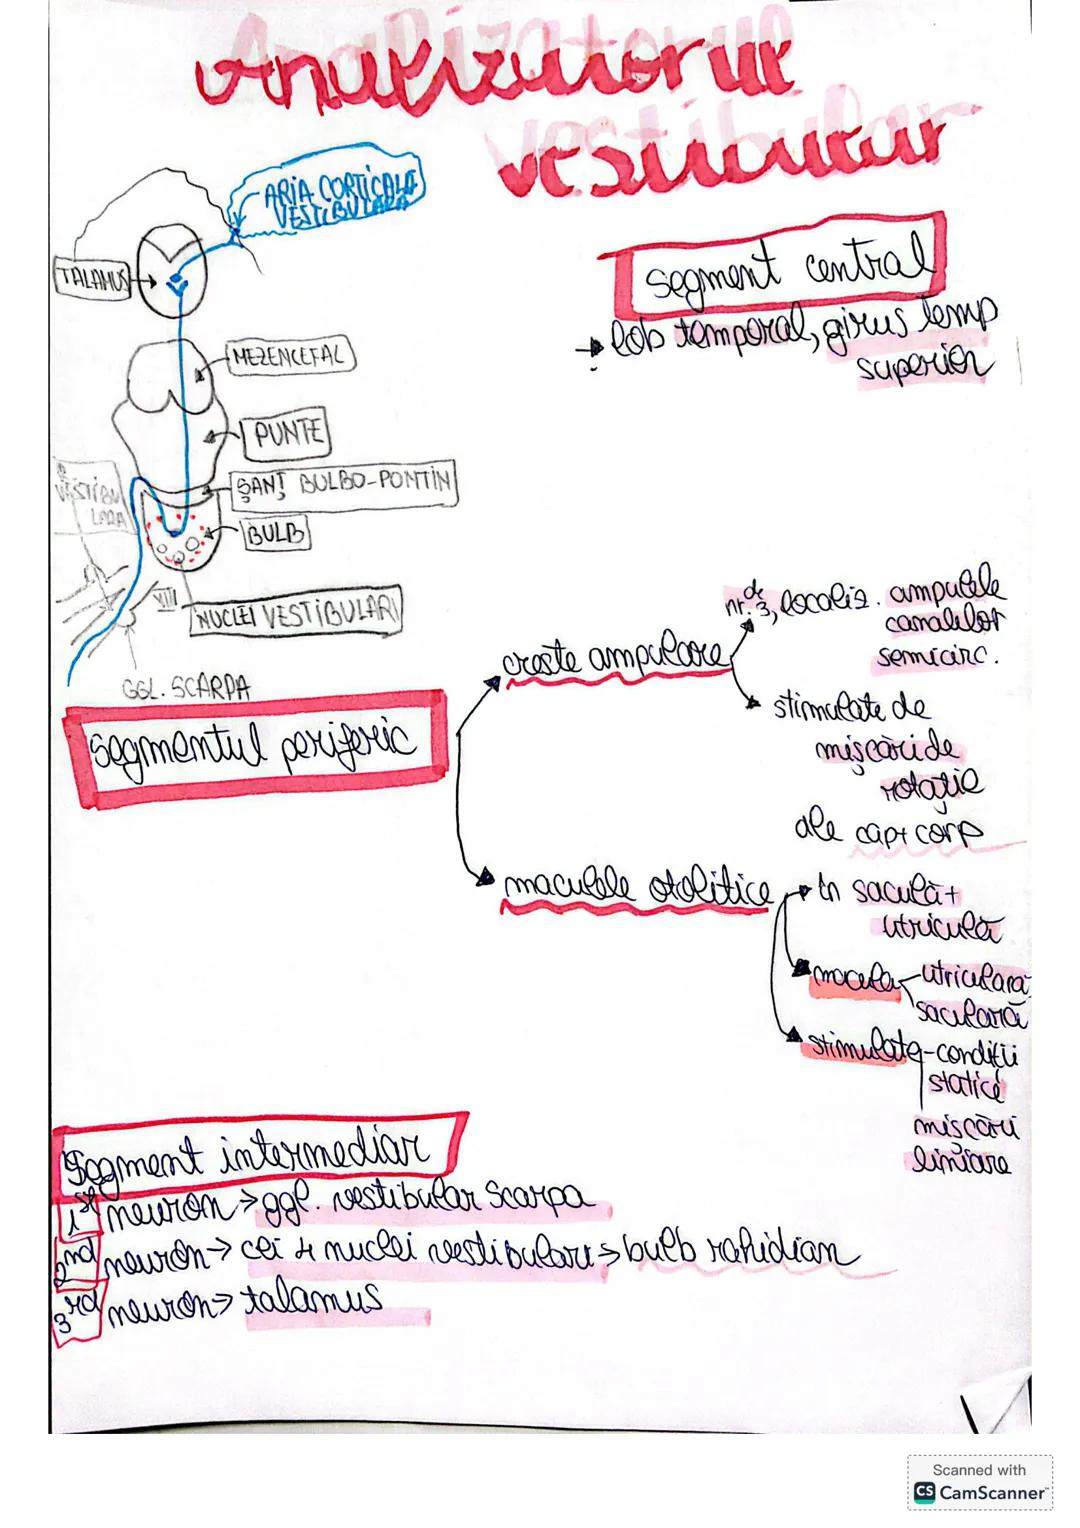 Analizatorul
vestibular
ARIA CORTICALĂ
VESTIBULARĂ
TALAMUS
MEZENCEFAL
PUNTE
ȘANȚ BULBO-PONTIN
BULB
VESTIBU
LARA
VIII
NUCLEI VESTIBULARI
GGL. SCARPA
segment central
→ lob temporal, girus temp
superior
Segmentul periferic
creste ampulare
de
nr. 3, localiz. ampulele
canalelor
semicirc.
stimulate de
mișcări de
rotație
ale cap+corp
maculele otolitice
în saculă+
utriculă
macula
utriculară
saculară
stimulate-condiții
statice
mișcări
liniare
Segment intermediar
1st neuron → ggl. vestibular Scarpa
2nd neuron → cei 4 nuclei vestibulari → bulb rahidian
3rd neuron → talamus
Scanned with
CS CamScanner